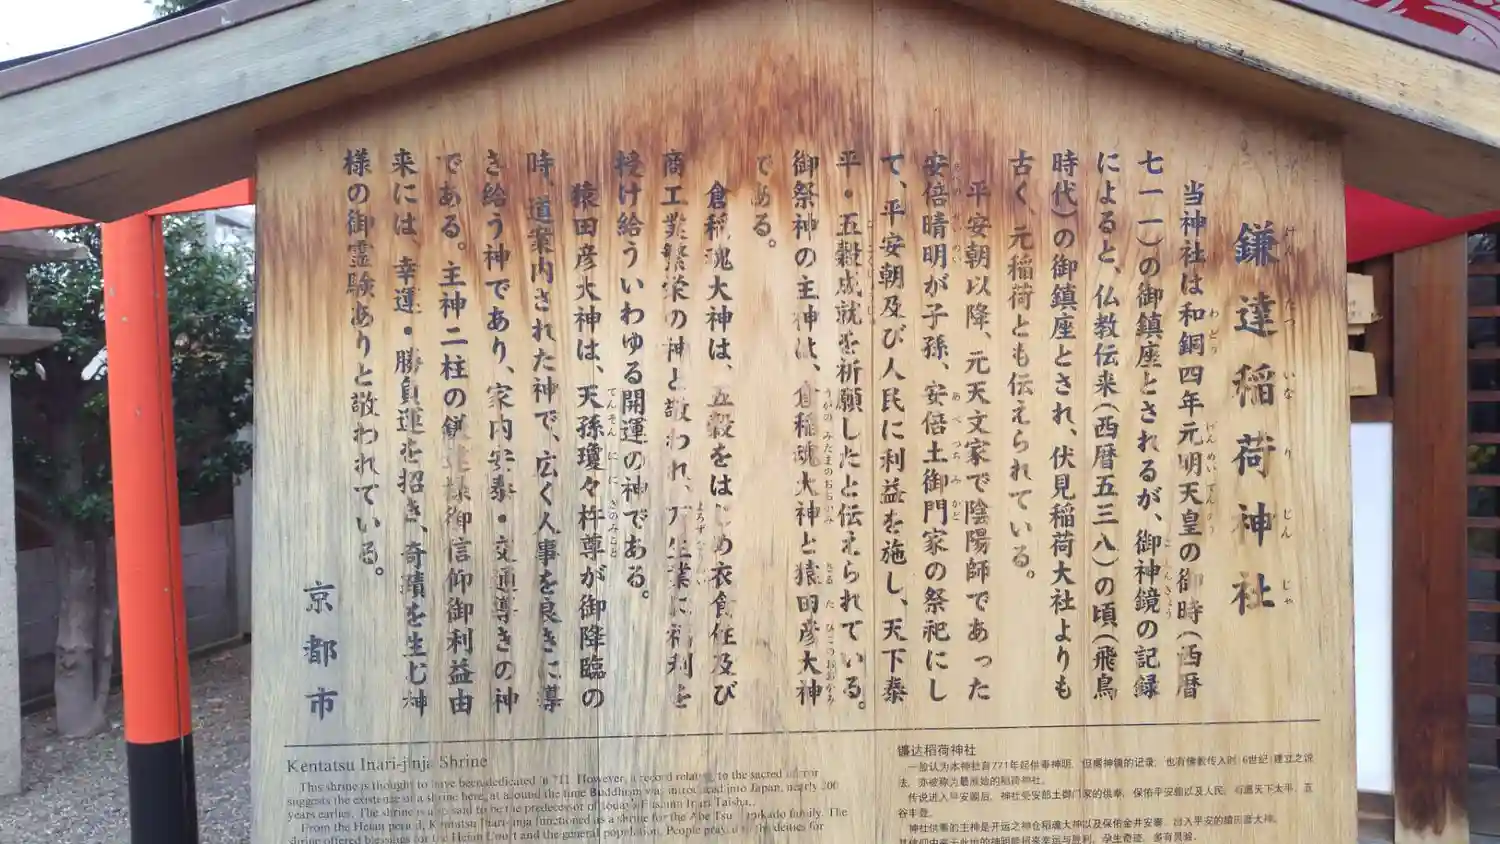 鎌達稲荷神社
けん たつ いな り じん じゃ
当神社は和銅四年元明天皇の御時(西暦
七一一)の御鎮座とされるが、御神鏡の記録
によると、仏教伝来(西暦五三八)の頃(飛鳥
時代)の御鎮座とされ、伏見稲荷大社よりも
古く、元稲荷とも伝えられている。
平安朝以降、元天文家で陰陽師であった
安倍晴明が子孫、安倍土御門家の祭祀にし
て、平安朝及び人民に利益を施し、天下泰
平・五穀成就を祈願したと伝えられている。
御祭神の主神は、倉稲魂大神と猿田彦大神
である。
倉稲魂大神は、五穀をはじめ衣食住及び
商工業繁栄の神と敬われ、万生業に福利を
授け給ういわゆる開運の神である。
猿田彦大神は、天孫瓊々杵尊が御降臨の
時、道案内された神で、広く人事を良きに導
き給う神であり、家内安泰・交通導きの神
である。主神二柱の鎌達様御信仰御利益由
来には、幸運・勝負運を招き、奇蹟を生む神
様の御霊験ありと敬われている。
京都市
Kentatsu Inari-jinja Shrine
This shrine is thought to have been dedicated in 711. However, a record relating to the sacred mirror
suggests the existence of a shrine here at around the time Buddhism was introduced into Japan, nearly 200
years earlier. The shrine is also said to be the predecessor of today's Fushimi Inari Taisha.
From the Heian period, Kentatsu Inari-jinja functioned as a shrine for the Abe Tsuchimikado family. The
shrine offered blessings for the Heian Court and the general population. People pray to the deities for
镰达稻荷神社
一般认为本神社自771年起供奉神明，但据神镜的记录，也有佛教传入时（6世纪）建立之说
法，亦被称为最原始的稻荷神社。
传说进入平安朝后，神社受安部土御门家的供奉，保佑平安朝以及人民，祈愿天下太平，五
谷丰登。
神社供奉的主神是开运之神仓稻魂大神以及保佑